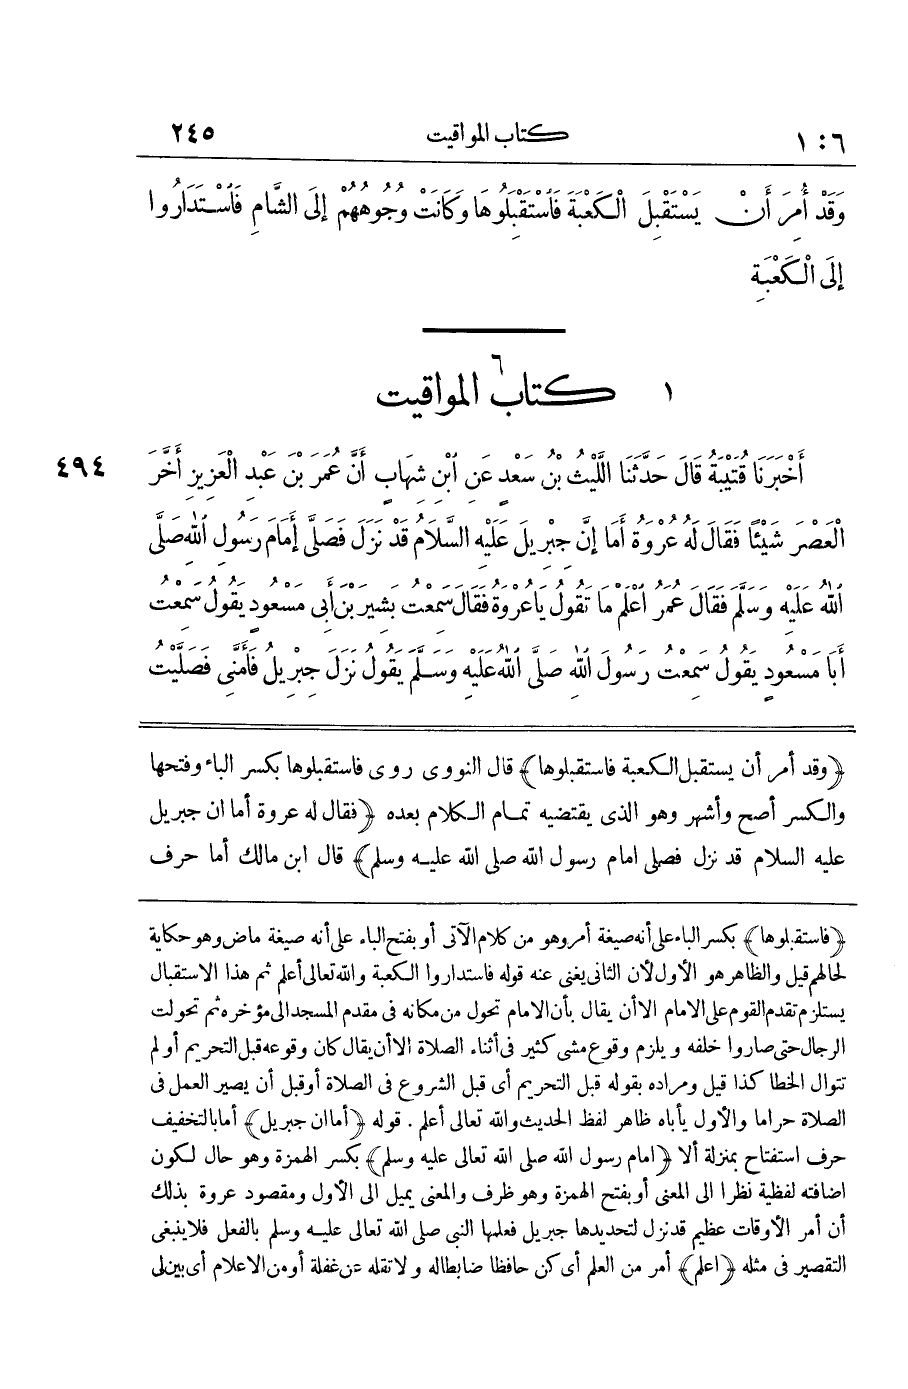 ١ : ٦ كتاب المواقيت ٢٤٥
وَقَدْ أُمِرَ أَنْ يَسْتَقْبِلَ الْكَعْبَةَ فَاسْتَقْبِلُوهَا وَكَانَتْ وُجُوهُهُمْ إِلَى الشَّامِ فَاسْتَدَارُوا
إِلَى الْكَعْبَةِ
٦
١ كتاب المواقيت
أَخْبَرَنَا قُتَيْبَةُ قَالَ حَدَّثَنَا اللَّيْثُ بْنُ سَعْدٍ عَنِ ابْنِ شِهَابٍ أَنَّ عُمَرَ بْنَ عَبْدِ الْعَزِيزِ أَخَّرَ ٤٩٤
الْعَصْرَ شَيْئًا فَقَالَ لَهُ عُرْوَةُ أَمَا إِنَّ جِبْرِيلَ عَلَيْهِ السَّلَامُ قَدْ نَزَلَ فَصَلَّى إِمَامَ رَسُولِ اللهِ صَلَّى
اللهُ عَلَيْهِ وَسَلَّمَ فَقَالَ عُمَرُ اعْلَمْ مَا تَقُولُ يَا عُرْوَةُ فَقَالَ سَمِعْتُ بَشِيرَ بْنَ أَبِى مَسْعُودٍ يَقُولُ سَمِعْتُ
أَبَا مَسْعُودٍ يَقُولُ سَمِعْتُ رَسُولَ اللهِ صَلَّى اللهُ عَلَيْهِ وَسَلَّمَ يَقُولُ نَزَلَ جِبْرِيلُ فَأَمَّنِى فَصَلَّيْتُ
﴿وقد أمر أن يستقبل الكعبة فاستقبلوها﴾ قال النووى روى فاستقبلوها بكسر الباء وفتحها
والكسر أصح وأشهر وهو الذى يقتضيه تمام الكلام بعده ﴿فقال له عروة أما ان جبريل
عليه السلام قد نزل فصلى امام رسول الله صلى الله عليه وسلم﴾ قال ابن مالك أما حرف
﴿فاستقبلوها﴾ بكسر الباء على أنه صيغة أمر وهو من كلام الآتى أو بفتح الباء على أنه صيغة ماض وهو حكاية
لحالهم قيل والظاهر هو الأول لأن الثانى يغنى عنه قوله فاستداروا الكعبة والله تعالى أعلم ثم هذا الاستقبال
يستلزم تقدم القوم على الامام الا أن يقال بأن الامام تحول من مكانه فى مقدم المسجد الى مؤخره ثم تحولت
الرجال حتى صاروا خلفه ويلزم وقوع مشى كثير فى أثناء الصلاة الا أن يقال كان وقوعه قبل التحريم أو لم
تتوال الخطا كذا قيل ومراده بقوله قبل التحريم أى قبل الشروع فى الصلاة أو قبل أن يصير العمل فى
الصلاة حراما والأول يأباه ظاهر لفظ الحديث والله تعالى أعلم . قوله ﴿أما ان جبريل﴾ أما بالتخفيف
حرف استفتاح بمنزلة ألا ﴿امام رسول الله صلى الله تعالى عليه وسلم﴾ بكسر الهمزة وهو حال لكون
اضافته لفظية نظرا الى المعنى أو بفتح الهمزة وهو ظرف والمعنى يميل الى الأول ومقصود عروة بذلك
أن أمر الأوقات عظيم قد نزل لتحديدها جبريل فعلمها النبى صلى الله تعالى عليه وسلم بالفعل فلا ينبغى
التقصير فى مثله ﴿اعلم﴾ أمر من العلم أى كن حافظا ضابطا له ولا تقله عن غفلة أو من الاعلام أى بين لى